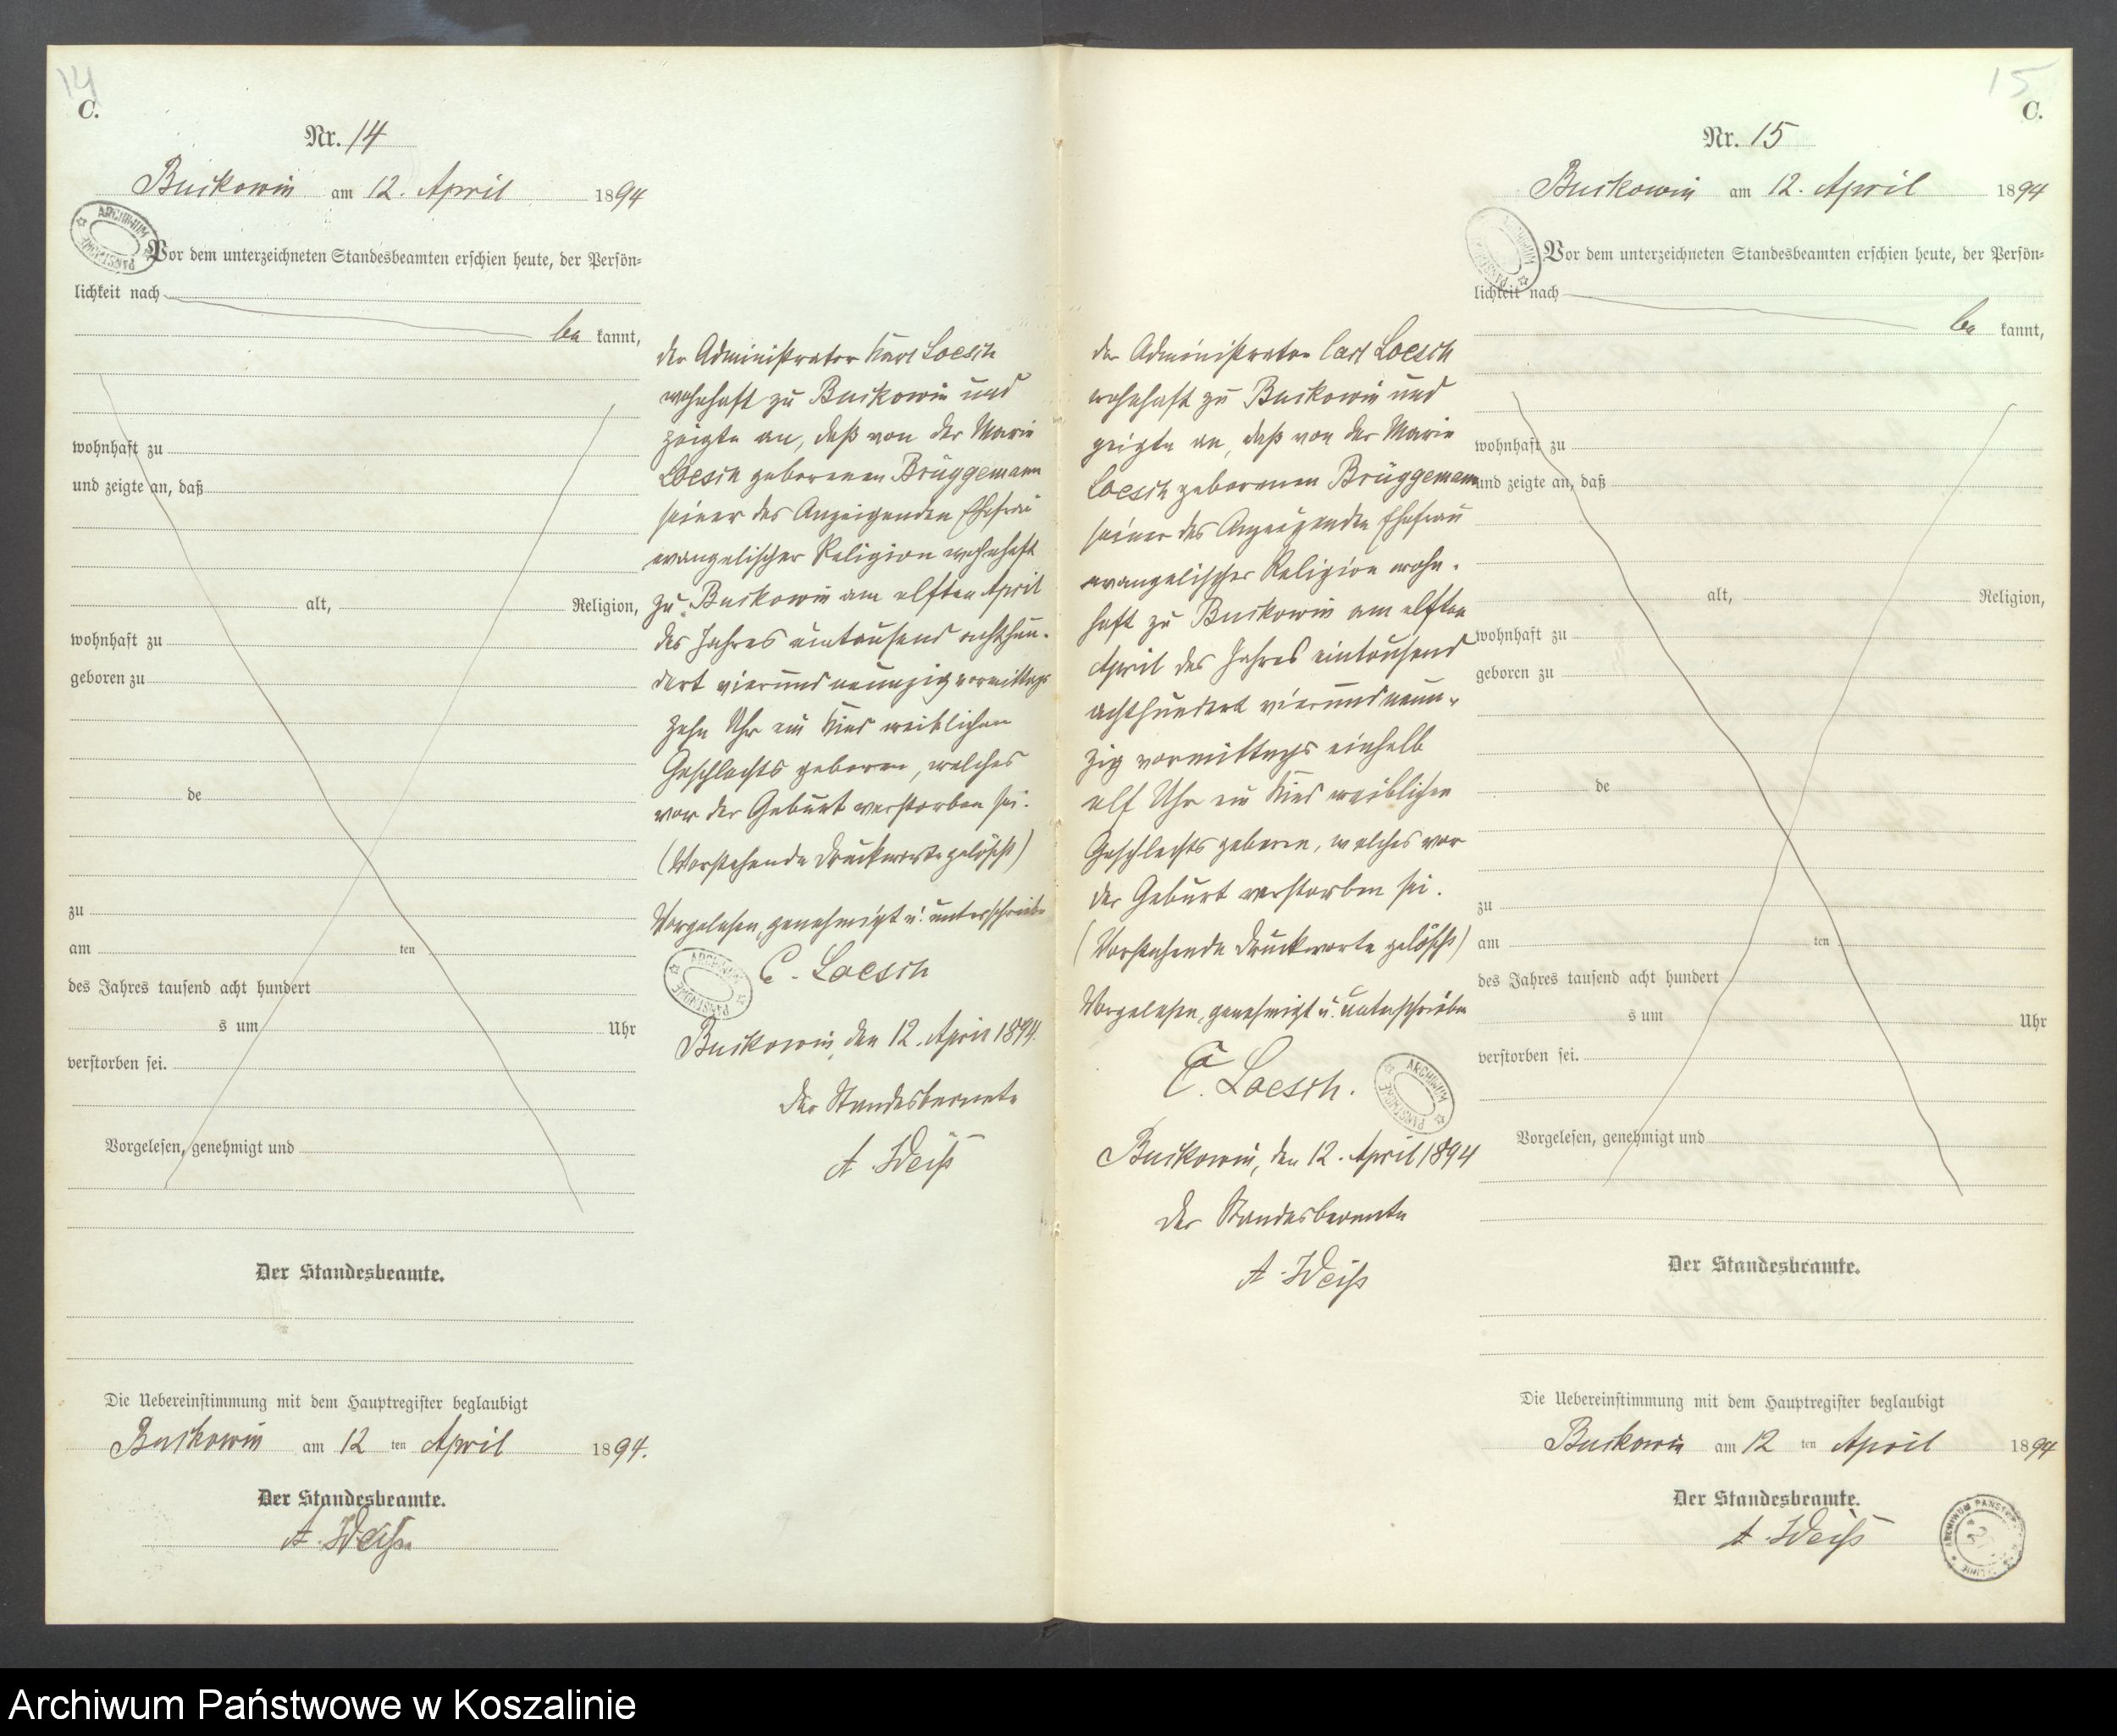 14
C.
Nr. 14
Buckowin am 12. April 1894
Vor dem unterzeichneten Standesbeamten erschien heute, der Persön=
lichkeit nach
be kannt,
wohnhaft zu
und zeigte an, daß
alt, Religion,
wohnhaft zu
geboren zu
de
zu
am ten
des Jahres tausend acht hundert
s um Uhr
verstorben sei.
Vorgelesen, genehmigt und
Der Standesbeamte.
Die Uebereinstimmung mit dem Hauptregister beglaubigt
Buckowin am 12 ten April 1894.
Der Standesbeamte.
A. Weiß
der Administrator Karl Loesch
wohnhaft zu Buckowin und
zeigte an, daß von der Marie
Loesch geborenen Brüggemann
seiner des Anzeigenden Ehefrau
evangelischer Religion wohnhaft
zu Buckowin am elften April
des Jahres eintausend achthun-
dert vierundneunzig vormittags
zehn Uhr ein Kind weiblichen
Geschlechts geboren, welches
vor der Geburt verstorben sei.
(Vorstehende Druckworte gelöscht)
Vorgelesen, genehmigt u. unterschrieben
C. Loesch
ARCHIWUM PAŃSTWOWE
Buckowin, den 12. April 1894.
Der Standesbeamte
A. Weiß
15
C.
Nr. 15
Buckowin am 12. April 1894
Vor dem unterzeichneten Standesbeamten erschien heute, der Persön=
lichkeit nach
be kannt,
wohnhaft zu
und zeigte an, daß
alt, Religion,
wohnhaft zu
geboren zu
de
zu
am ten
des Jahres tausend acht hundert
s um Uhr
verstorben sei.
Vorgelesen, genehmigt und
Der Standesbeamte.
Die Uebereinstimmung mit dem Hauptregister beglaubigt
Buckowin am 12 ten April 1894
Der Standesbeamte.
A. Weiß
der Administrator Carl Loesch
wohnhaft zu Buckowin und
zeigte an, daß von der Marie
Loesch geborenen Brüggemann
seiner des Anzeigenden Ehefrau
evangelischer Religion wohn-
haft zu Buckowin am elften
April des Jahres eintausend
achthundert vierundneun-
zig vormittags einhalb
elf Uhr ein Kind weiblichen
Geschlechts geboren, welches vor
der Geburt verstorben sei.
(Vorstehende Druckworte gelöscht)
Vorgelesen, genehmigt u. unterschrieben
C. Loesch.
ARCHIWUM PAŃSTWOWE
Buckowin, den 12. April 1894
Der Standesbeamte
A. Weiß
Archiwum Państwowe w Koszalinie